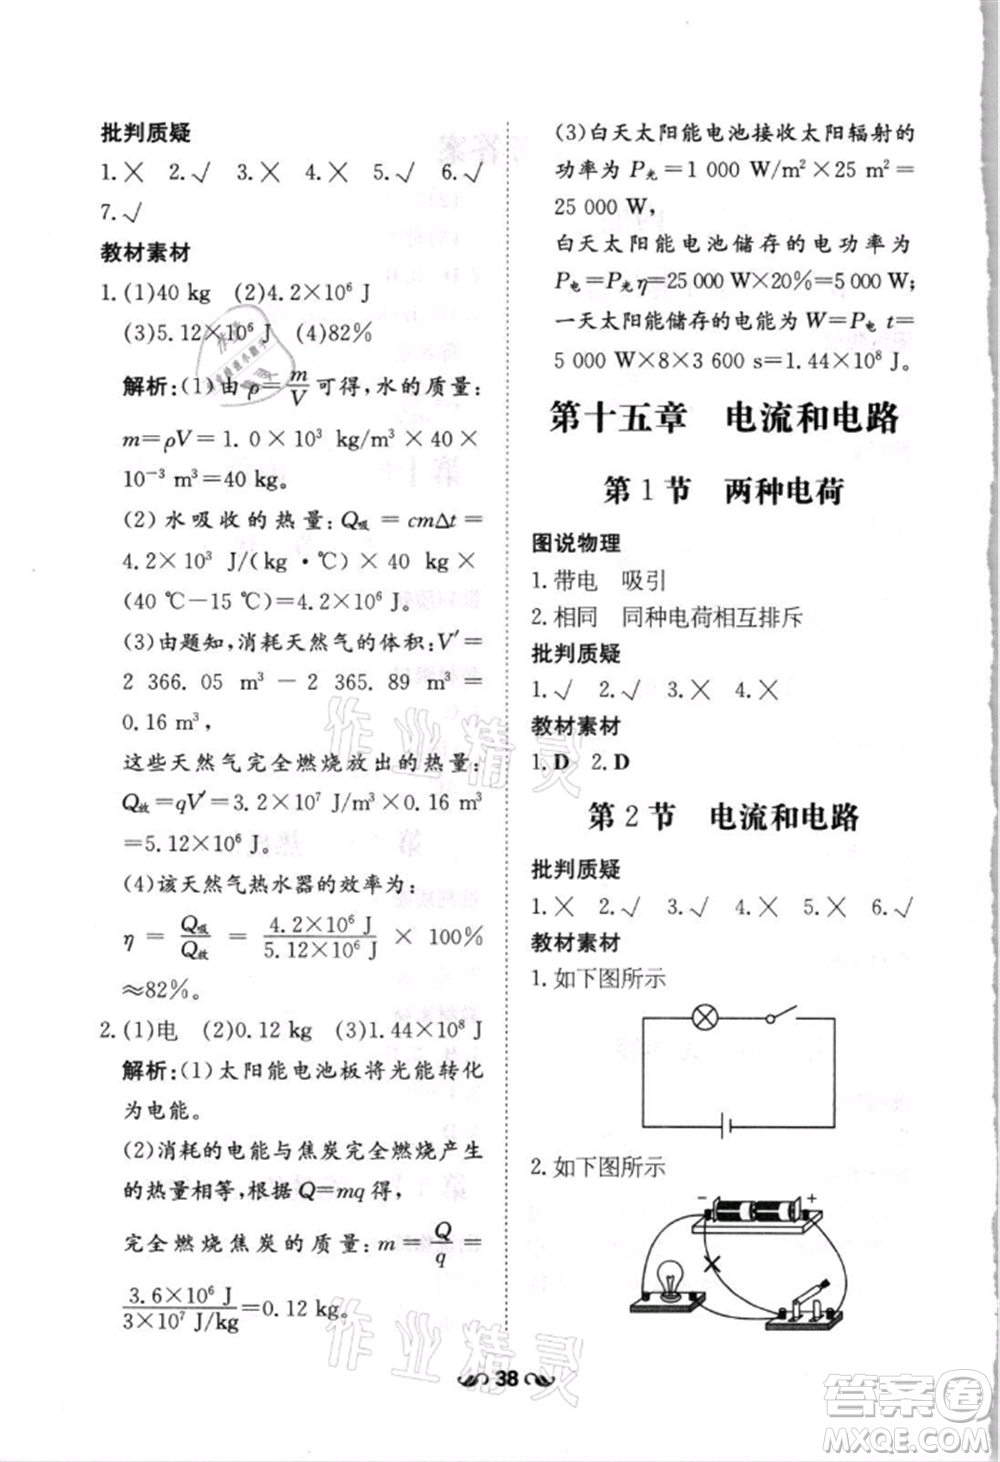 批判质疑
1.× 2.√ 3.× 4.× 5.√ 6.√
7.√
教材素材
1.(1)40 kg (2)4.2×10⁶ J
(3)5.12×10⁶ J (4)82%
解析:(1)由ρ=m/V可得,水的质量:
m=ρV=1.0×10³ kg/m³×40×
10⁻³ m³=40 kg。
(2)水吸收的热量:Q吸=cmΔt=
4.2×10³ J/(kg·℃)×40 kg×
(40 ℃-15 ℃)=4.2×10⁶ J。
(3)由题知,消耗天然气的体积:V′=
2 366.05 m³-2 365.89 m³=
0.16 m³,
这些天然气完全燃烧放出的热量:
Q放=qV′=3.2×10⁷ J/m³×0.16 m³=
5.12×10⁶ J。
(4)该天然气热水器的效率为:
η=Q吸/Q放=4.2×10⁶ J/5.12×10⁶ J×100%
≈82%。
2.(1)电 (2)0.12 kg (3)1.44×10⁸ J
解析:(1)太阳能电池板将光能转化
为电能。
(2)消耗的电能与焦炭完全燃烧产生
的热量相等,根据Q=mq得,
完全燃烧焦炭的质量:m=Q/q=
3.6×10⁶ J/3×10⁷ J/kg=0.12 kg。
(3)白天太阳能电池接收太阳辐射的
功率为P光=1 000 W/m²×25 m²=
25 000 W,
白天太阳能电池储存的电功率为
P电=P光η=25 000 W×20%=5 000 W;
一天太阳能储存的电能为W=P电t=
5 000 W×8×3 600 s=1.44×10⁸ J。
第十五章 电流和电路
第1节 两种电荷
图说物理
1.带电 吸引
2.相同 同种电荷相互排斥
批判质疑
1.√ 2.√ 3.× 4.×
教材素材
1.D 2.D
第2节 电流和电路
批判质疑
1.× 2.× 3.√ 4.× 5.× 6.√
教材素材
1.如下图所示
2.如下图所示
- +
38
作业精灵
作业精灵
答案圈
MXQE.COM